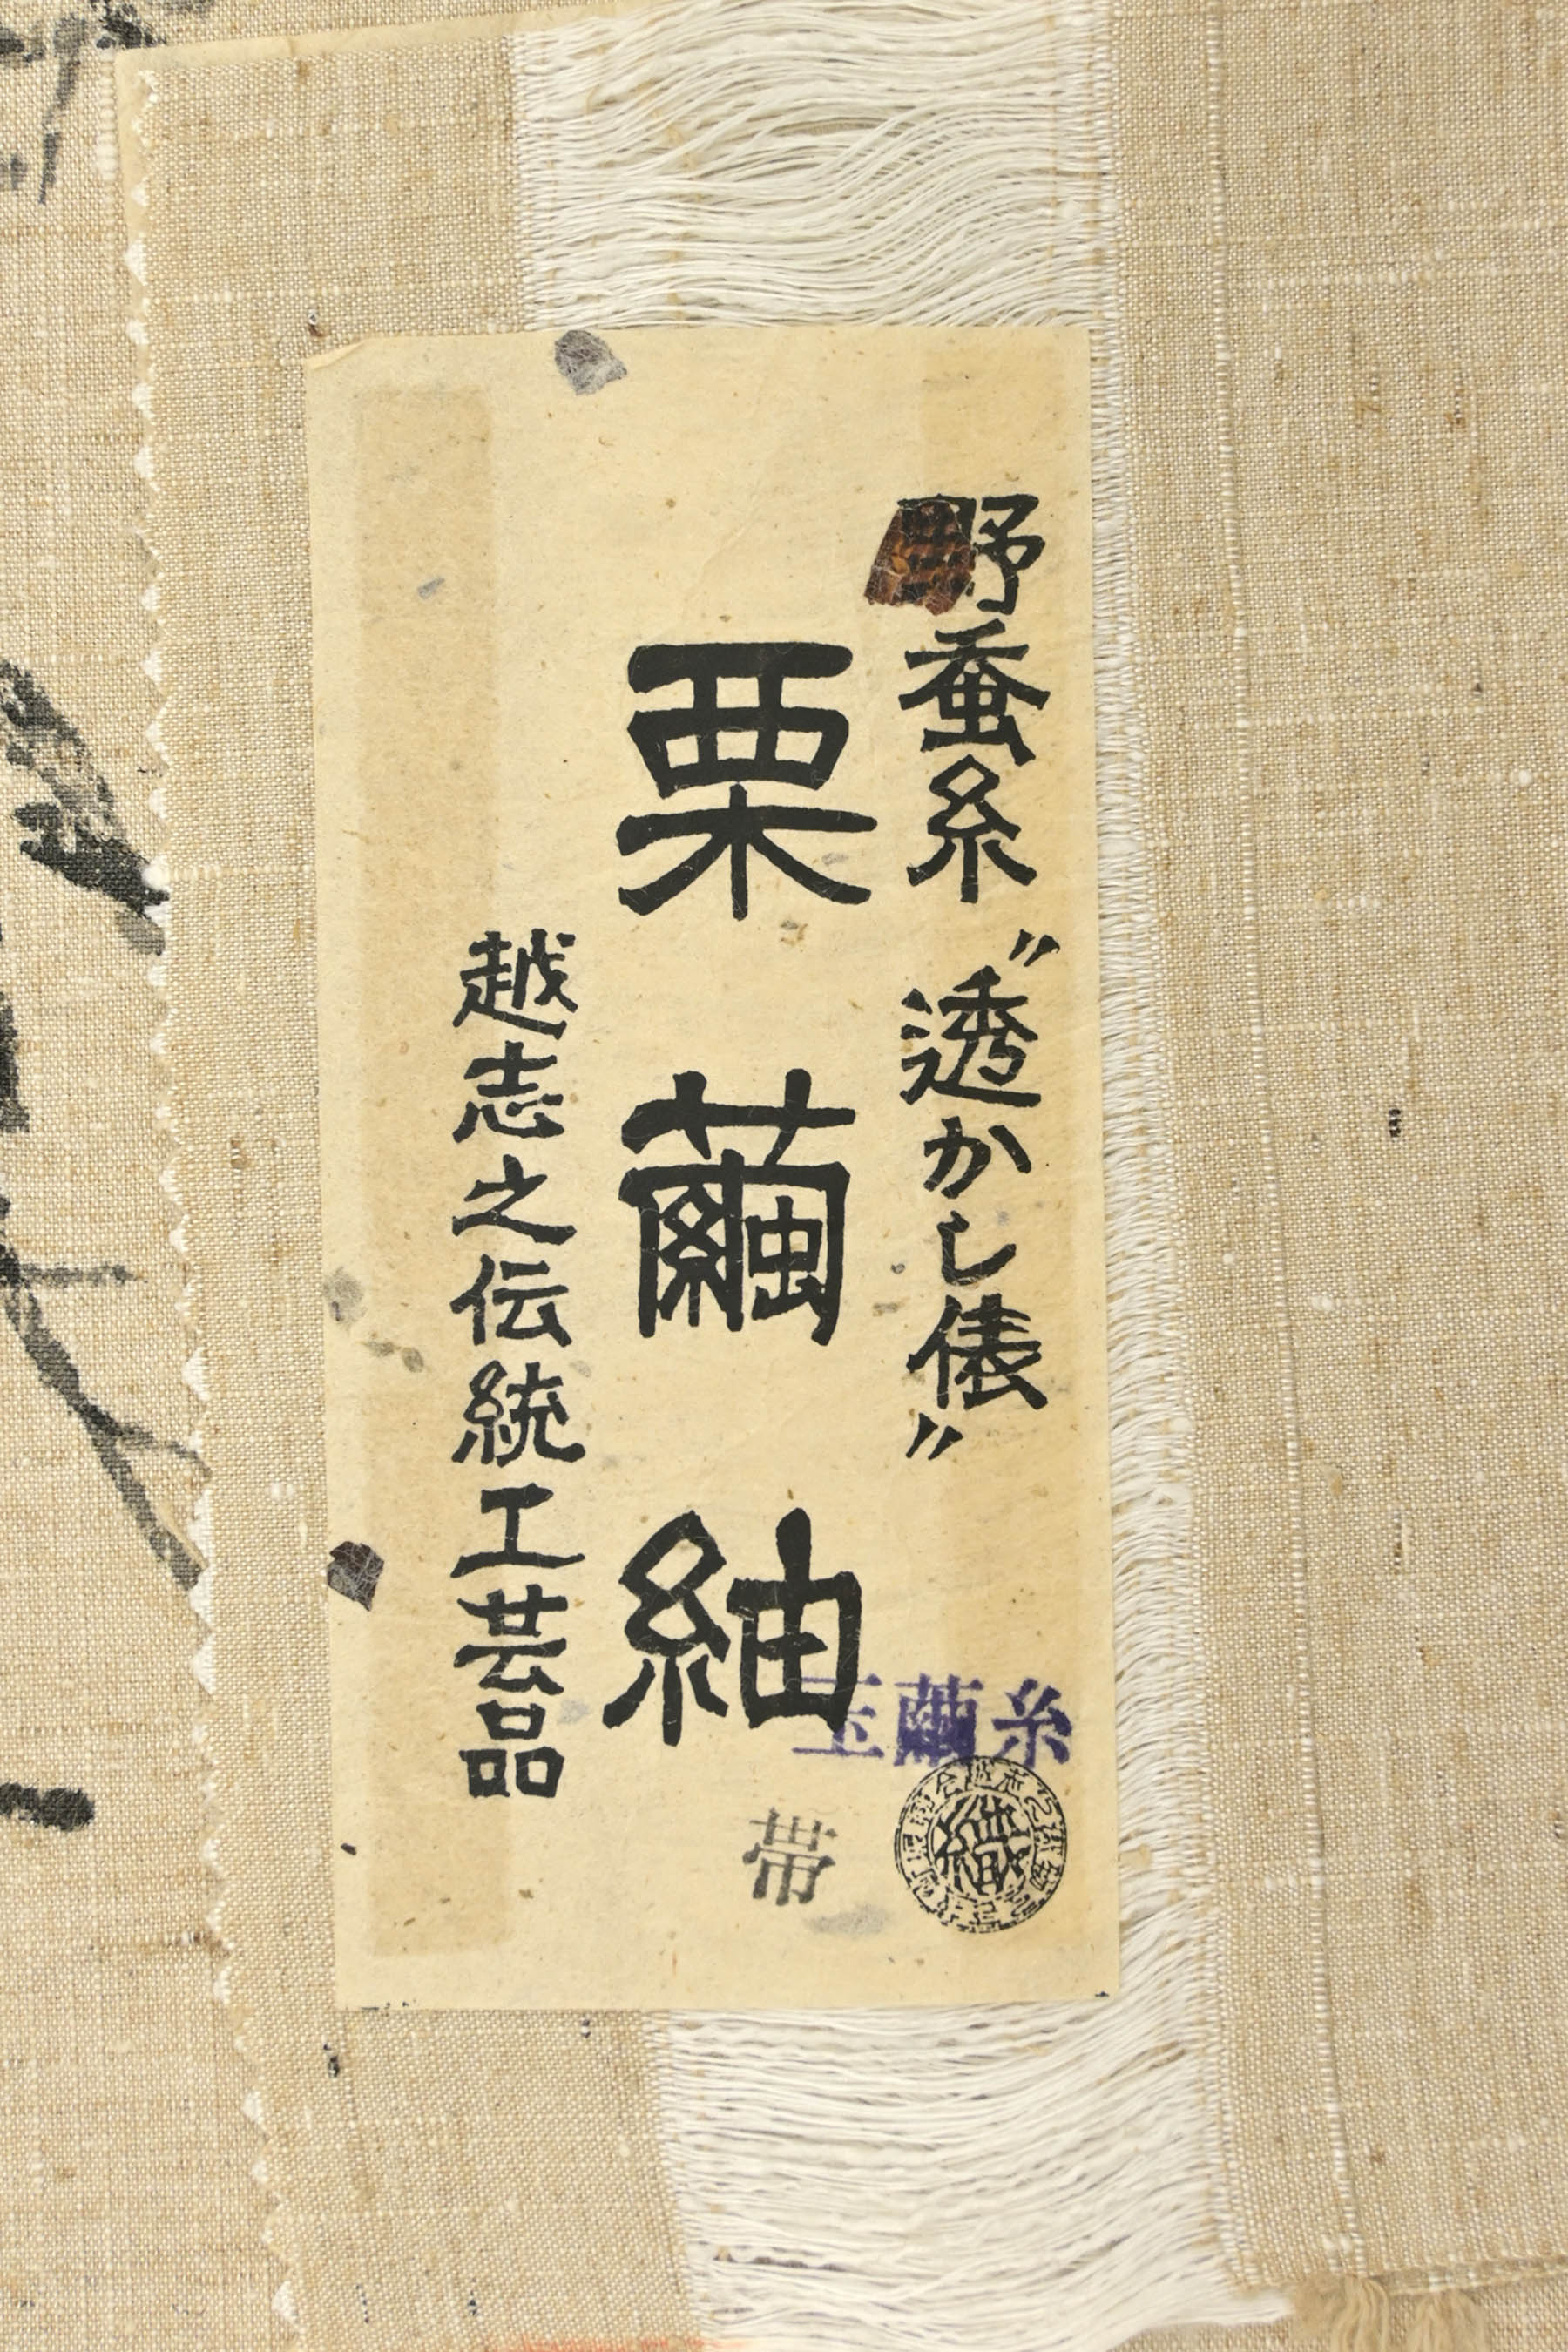 野蚕糸〝透かし俵〟
栗繭紬
越志之伝統工芸品
玉繭糸
帯
織